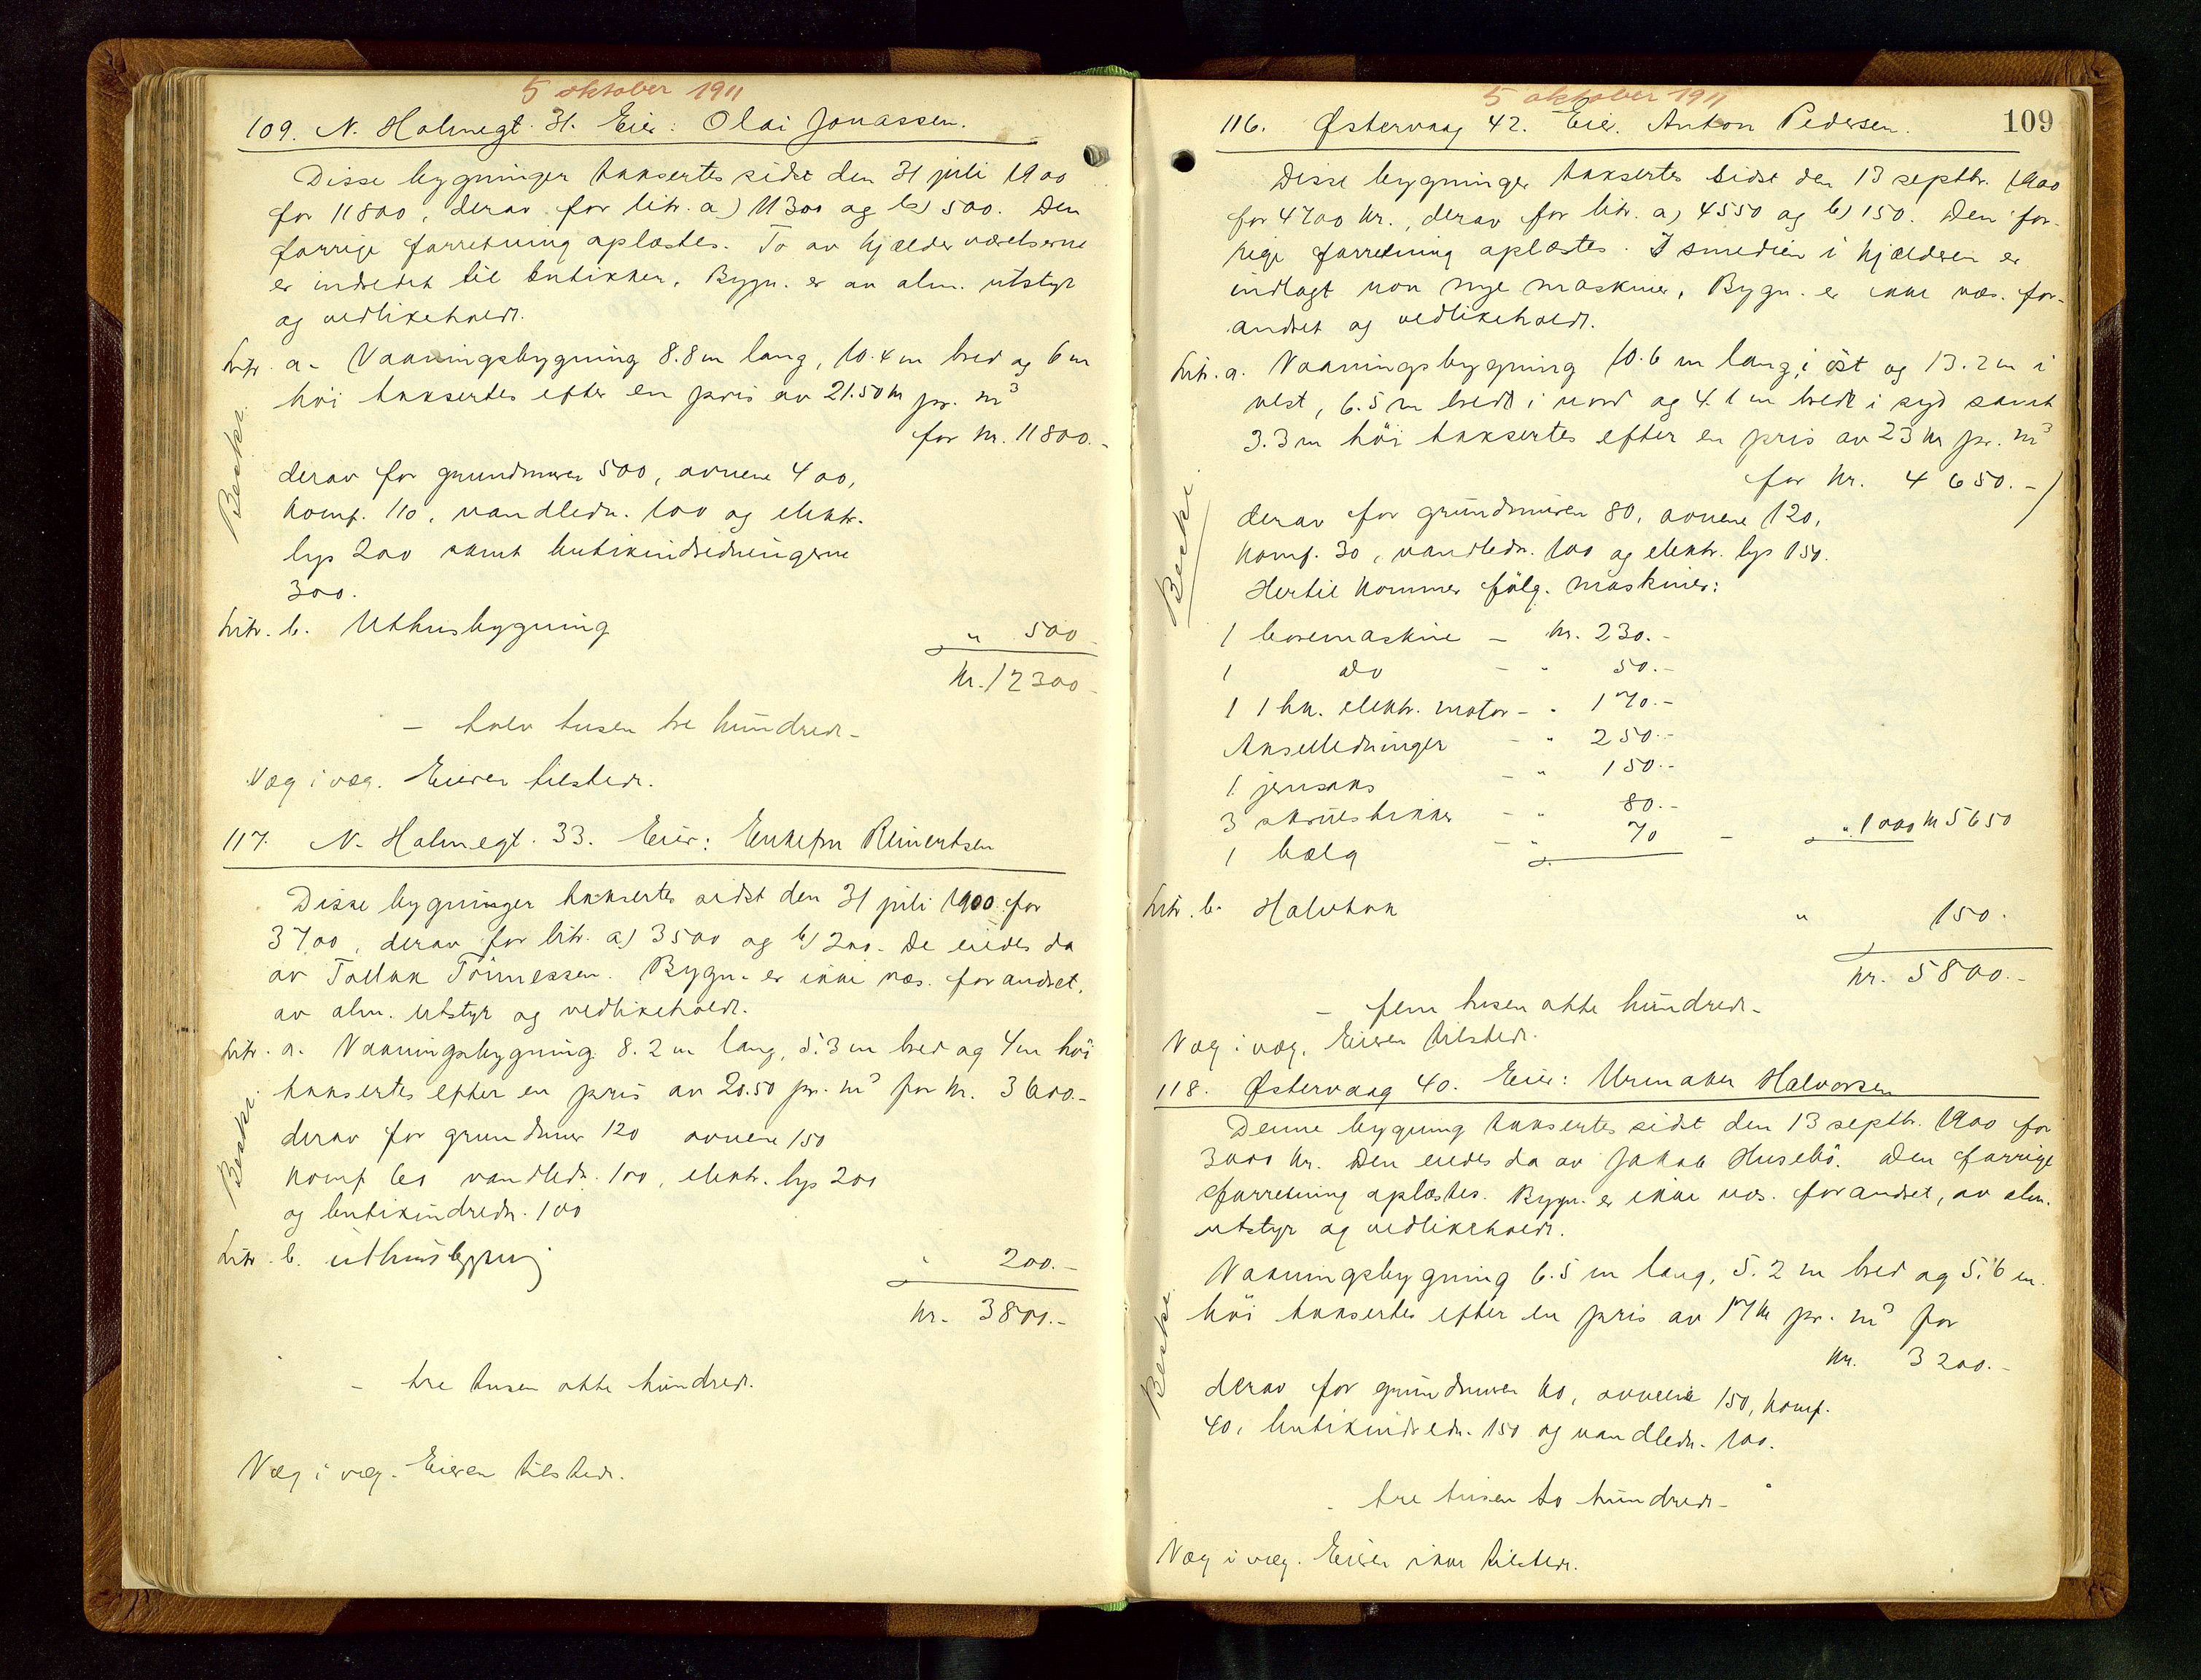 5 oktober 1911
109. N. Holmegt. 31. Eier: Olai Jonassen.
Disse bygninger taksertes sidst den 31 juli 1900
for 11800, derav for litr. a) 11300 og b) 500. Den
forrige forretning oplæstes. To av kjælderværelserne
er indredet til butikker. Bygn. er av alm. utstyr
og vedlikeholdt.
Litr. a. Vaaningsbygning 8.8 m lang, 10.4 m bred og 6 m
høi taksertes efter en pris av 21.50 kr pr. m³
for kr. 11800.-
Beskr.
derav for grundmuren 500, ovnene 400,
komf. 110, vandledn. 100 og elektr.
lys 200 samt butikindredningerne
300.
Litr. b. Uthusbygning " 500-
kr. 12300-
- tolv tusen tre hundrede-
Væg i væg. Eieren tilstede.
117. N. Holmegt. 33. Eier: Enkefru Reinertsen
Disse bygninger taksertes sidst den 31 juli 1900 for
3700, derav for litr. a) 3500 og b) 200- De eiedes da
av Tallak Tönnessen. Bygn. er ikke væs. forandret,
av alm. utstyr og vedlikeholdt.
Litr. a. Vaaningsbygning 8.2 m lang, 5.3 m bred og 4 m høi
taksertes efter en pris av 20.50 pr. m³ for kr. 3600.-
Beskr.
derav for grundmur 120 ovnene 150
komf 60 vandledn. 100, elektr. lys 200
og butikindredn. 100
Litr. b. uthusbygning " 200.-
kr. 3800.-
- tre tusen otte hundrede.
Væg i væg. Eieren tilstede.
109
5 oktober 1911
116. Østervaag 42. Eier. Anton Pedersen.
Disse bygninger taksertes sidst den 13 septbr. 1900
for 4700 kr., derav for litr. a) 4550 og b) 150. Den for-
rige forretning oplæstes. I smedien i kjælderen er
indlagt nye maskiner, Bygn. er ikke væs. for-
andret og vedlikeholdt.
Litr. a. Vaaningsbygning 10.6 m lang i öst og 13.2 m i
vest, 6.5 m bredt i nord og 4.1 m bredt i syd samt
3.3 m høi taksertes efter en pris av 23 kr pr. m³
for kr. 4650.-
Beskr.
derav for grundmuren 80, ovnene 120,
komf. 30, vandledn. 100 og elektr. lys 150.
Hertil kommer fölg. maskiner:
1 boremaskine - kr. 230.-
1 do - " 50.-
1 1 hk. elektr. motor - " 170.-
Akselledninger - " 250.-
1 jernsaks - " 150.-
3 skruestikker - " 80.-
1 bælg - " 70 - " 1000 kr 5650
Litr. b. Halvtak " 150.
kr. 5800.-
- fem tusen otte hundrede-
Væg i væg. Eieren tilstede.
118. Østervaag 40. Eier: Urmaker Halvorsen
Denne bygning taksertes sidst den 13 septbr. 1900 for
3000 kr. Den eiedes da av Jakob Husebö. Den forrige
forretning oplæstes. Bygn. er ikke væs. forandret, av alm.
utstyr og vedlikeholdt.
Vaaningsbygning 6.5 m lang, 5.2 m bred og 5.6 m.
høi taksertes efter en pris av 17 kr pr. m³ for
kr. 3200.-
Beskr.
derav for grundmuren 60, ovnene 150, komf.
40, butikindredn. 150 og vandledn. 100.
- tre tusen to hundrede-
Væg i væg. Eieren ikke tilstede.